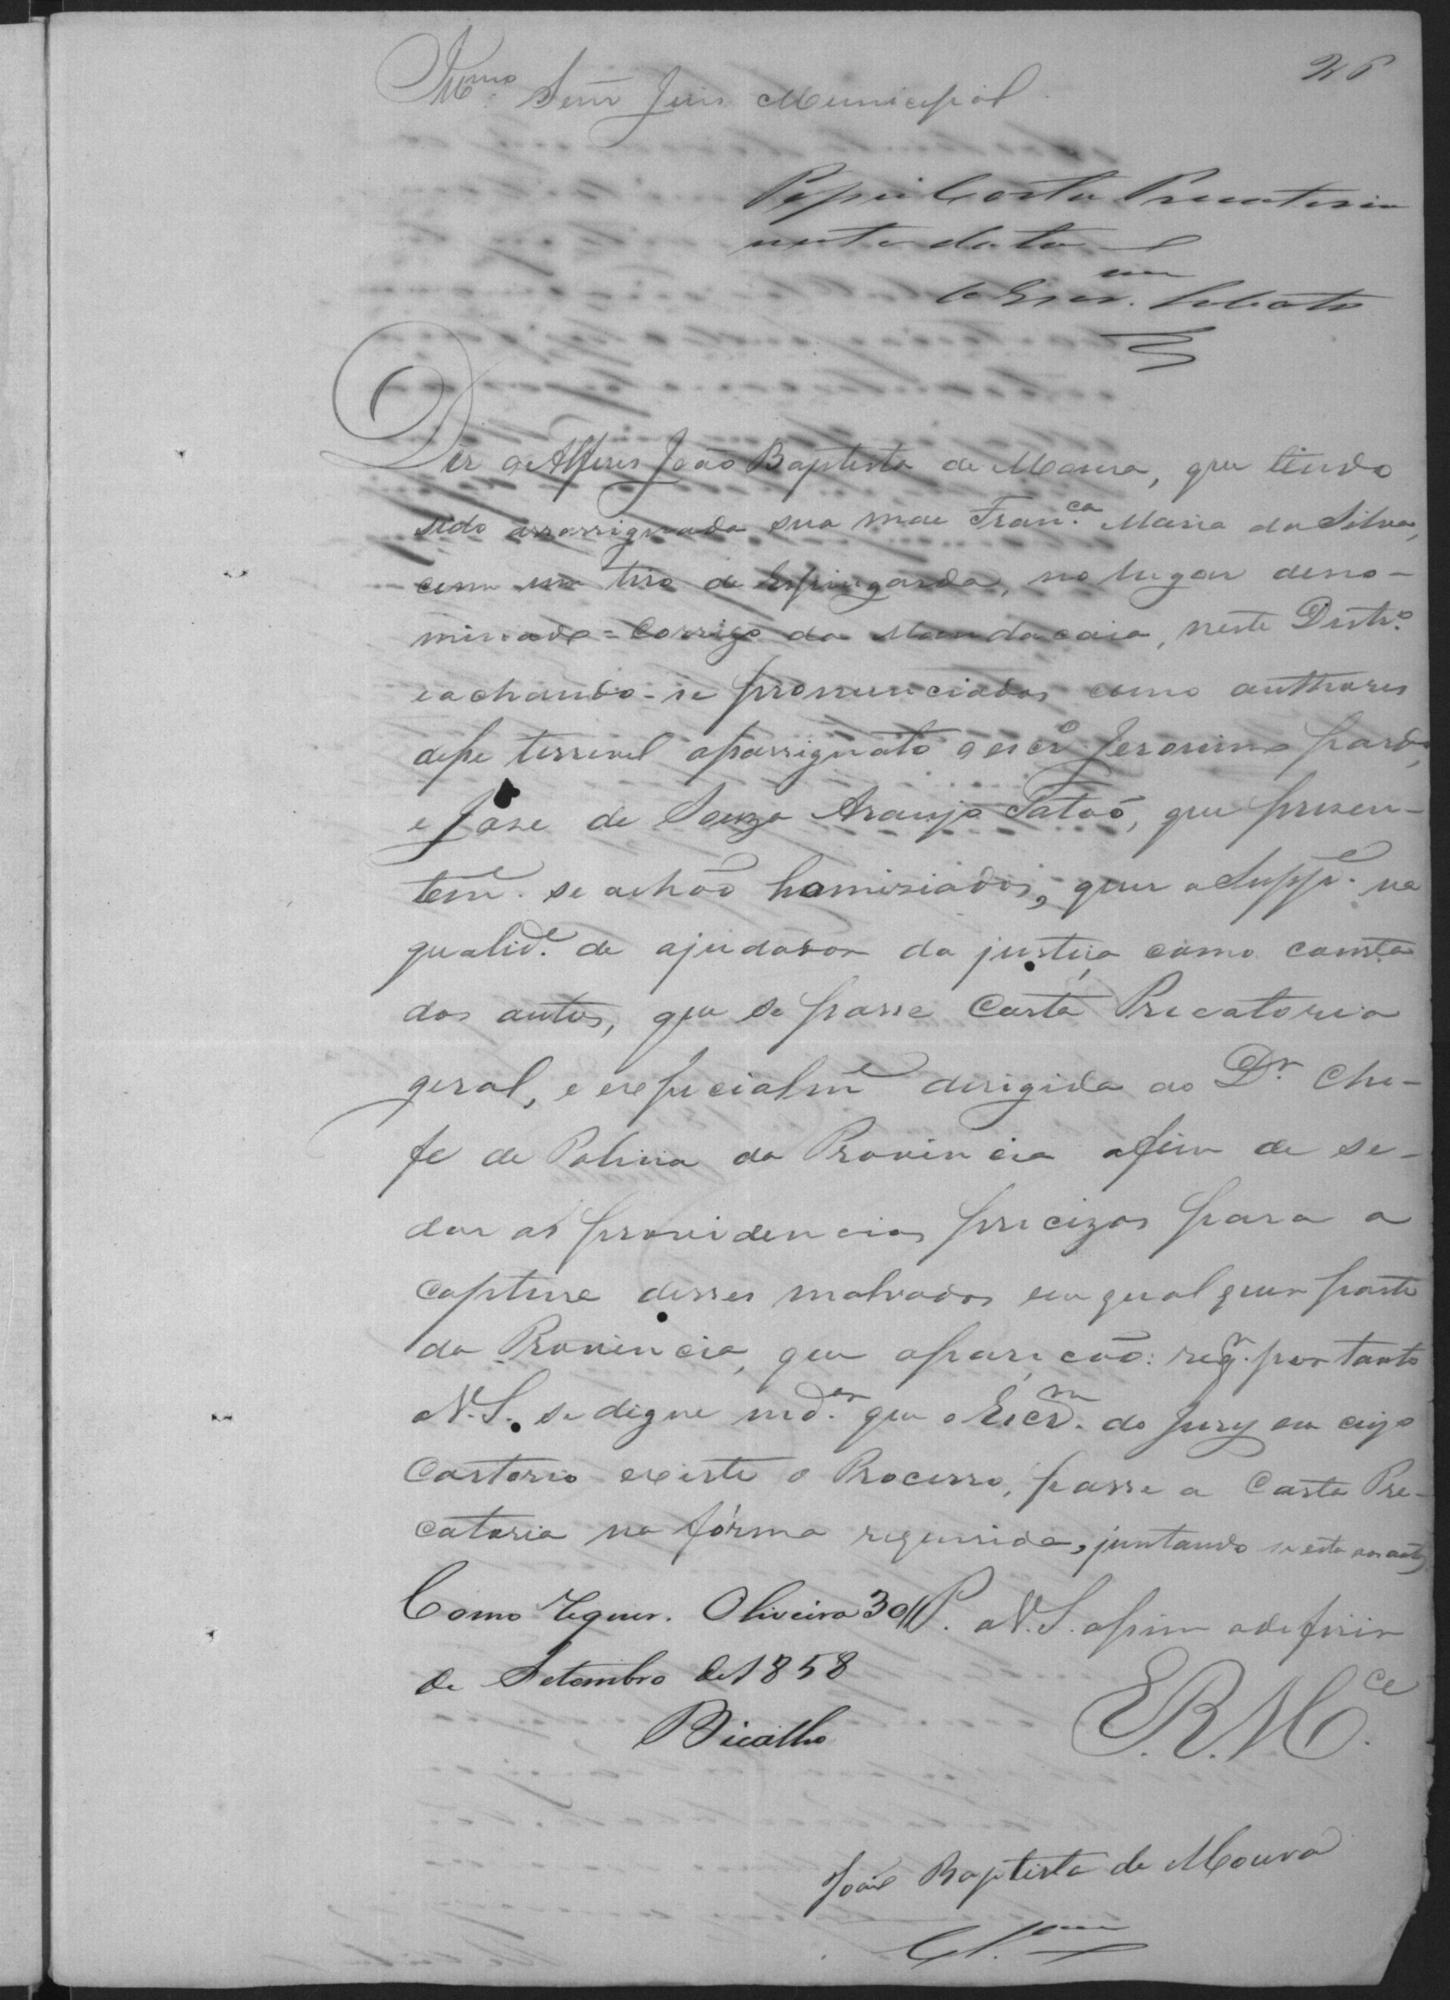 26
Illmo. Senr Juis Municipal
Passei Carta Precatoria
nesta data
O Escr.am Lobato
Diz o Alferes João Baptista de Moura, que tendo
sido assassignada sua mae Fran.ca Maria da Silva,
com um tiro de Espingarda, no lugar deno-
minado = Corrigo da Mandacaia, neste Distr.o
e achando-se pronunciados como authores
desse terrivel assassignato o escr.o Jeronimo pardo,
e Jose de Souza Araujo Tatão, que presen-
tem.e se achão homisiados, quer o Supp.e na
qualid.e de ajudador da justiça como consta
dos autos, que se passe Carta Precatoria
geral, e especialm.e dirigida ao Dr. Che-
fe de Policia da Provincia afim de se-
dar as providencias precizas para a
captura desses malvados em qual quer parte
da Provincia, que apareção: reqr. portanto
a V.S. se digne md.ar que o Escr.m do Jury em cujo
Cartorio existe o Processo, passe a Carta Pre-
catoria na fórma requerida, juntando se esta aos autos
P. a V.S. assim o defirir
Como requer. Oliveira 30
de Setembro de 1858
Bicalho
E.R.M.ce
João Baptista de Moura